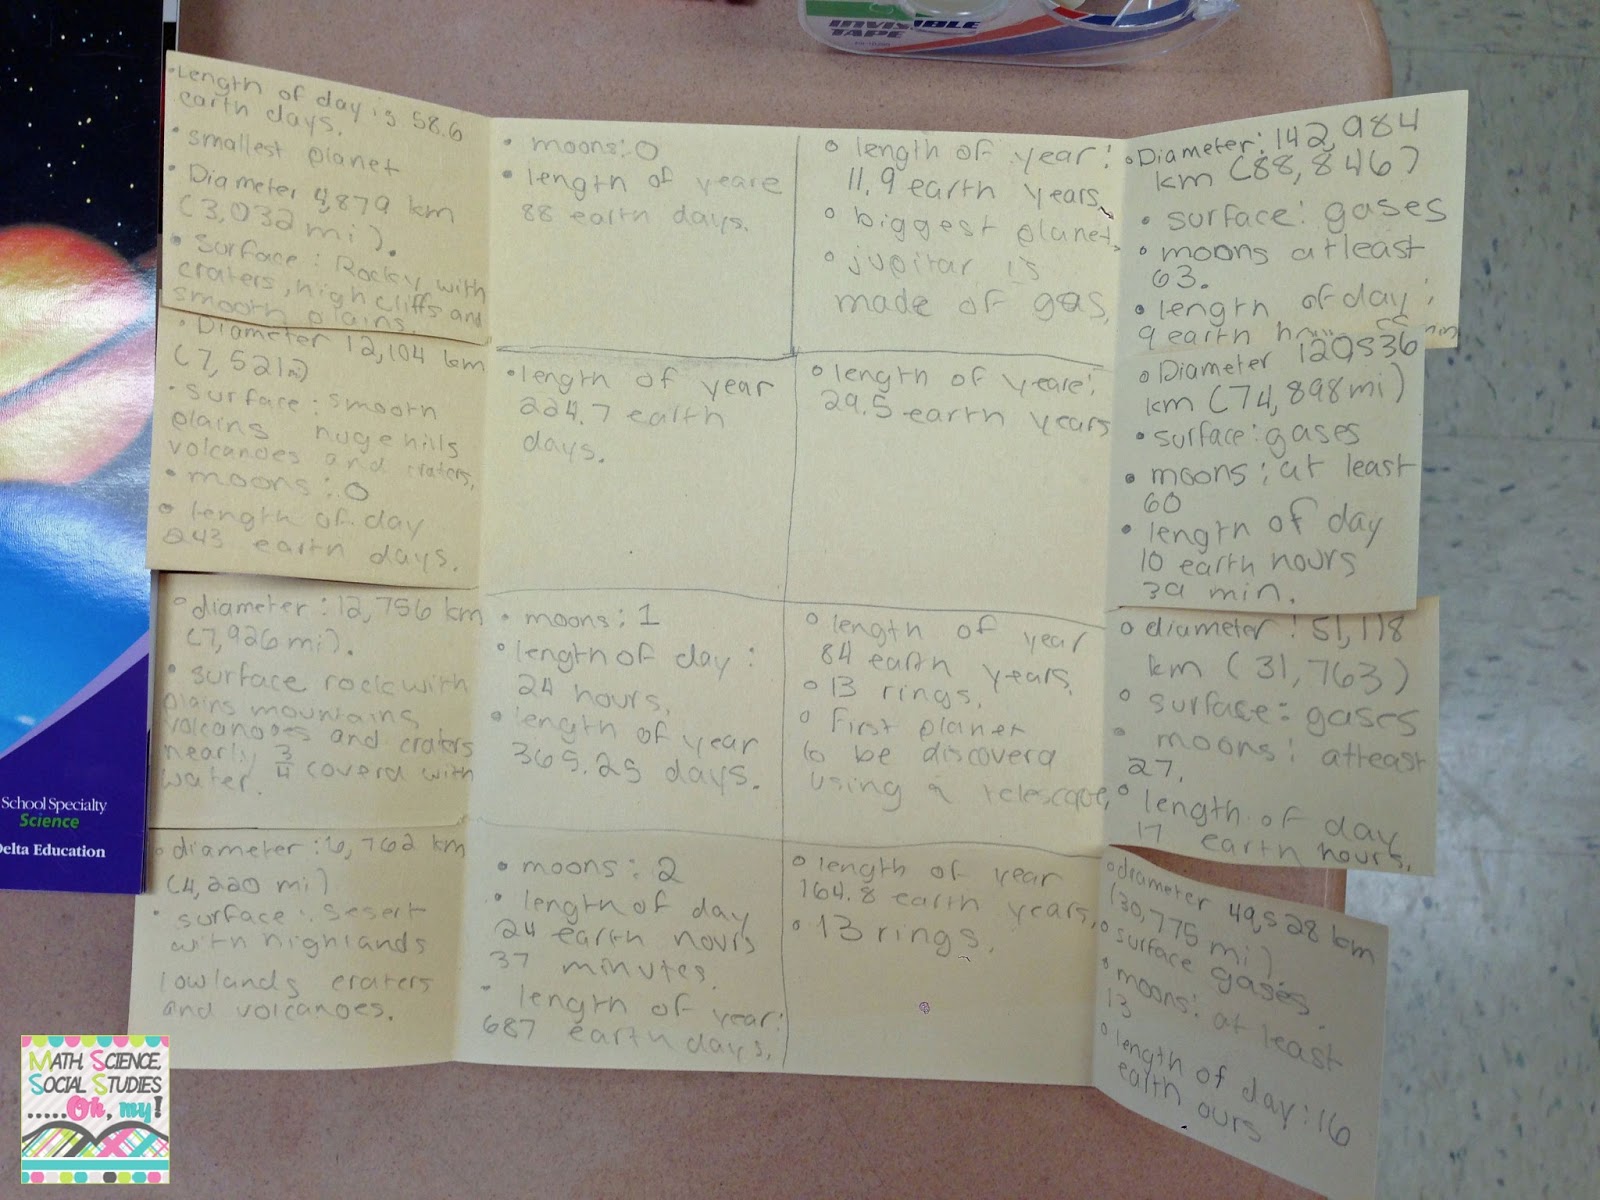 INVISIBLE
TAPE
• Length of day is 58.6
earth days.
• smallest planet
• Diameter 4,879 km
(3,032 mi).
• Surface: Rocky with
craters, high cliffs and
smooth plains.
• moons: 0
• length of yeare
88 earth days.
• length of year:
11.9 earth years,
• biggest planet,
• jupitar is
made of gas,
• Diameter: 142,984
km (88,846)
• surface: gases
• moons atleast
63.
• length of day:
9 earth
• Diameter 12,104 km
(7,521
• surface: smooth
plains huge hills
volcanoes and craters,
• moons: 0
• length of day
243 earth days.
• length of year
224.7 earth
days.
• length of yeare:
29.5 earth years
• Diameter 120,536
km (74,898 mi)
• surface: gases
• moons: at least
60
• length of day
10 earth hours
39 min.
• diameter: 12,756 km
(7,926 mi).
• surface rock with
plains mountains
volcanoges and craters
nearly 3/4 coverd with
water.
• moons: 1
• length of day:
24 hours,
• length of year
365.25 days.
• length of year
84 earth years,
• 13 rings,
• First planet
to be discoverd
using a telescope,
• diameter: 51,118
km (31,763)
• surface: gases
• moons: atleast
27.
• length of day
17 earth hours.
• diameter: 6,762 km
(4,220 mi)
• surface: Sesert
with highlands
lowlands craters
and volcanoes.
• moons: 2
• length of day
24 earth hours
37 minutes.
• length of year:
687 earth days,
• length of year
164.8 earth years,
• 13 rings,
• diameter 49,528 km
(30,775 mi)
• surface gases.
• moons: at least
13
• length of day: 16
earth ours
School Specialty
Science
Delta Education
MATH, SCIENCE,
SOCIAL STUDIES
.....Oh, my!